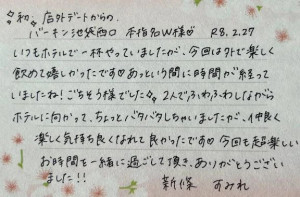 初 店外デートからの、
バーキン池袋西口 本指名W様♡ R8.2.27
いつもホテルで一杯やっていましたが、今回は外で楽しく
飲めて嬉しかったです♡あっという間に時間が経って
いましたね!ごちそう様でした 2人でふわふわしながら
ホテルに向かって、ちょっとバタバタしちゃいましたが、仲良く
楽しく気持ち良くなれて良かったです♡今回も超楽しい
お時間を一緒に過ごして頂き、ありがとうござい
ました!!
新條 すみれ